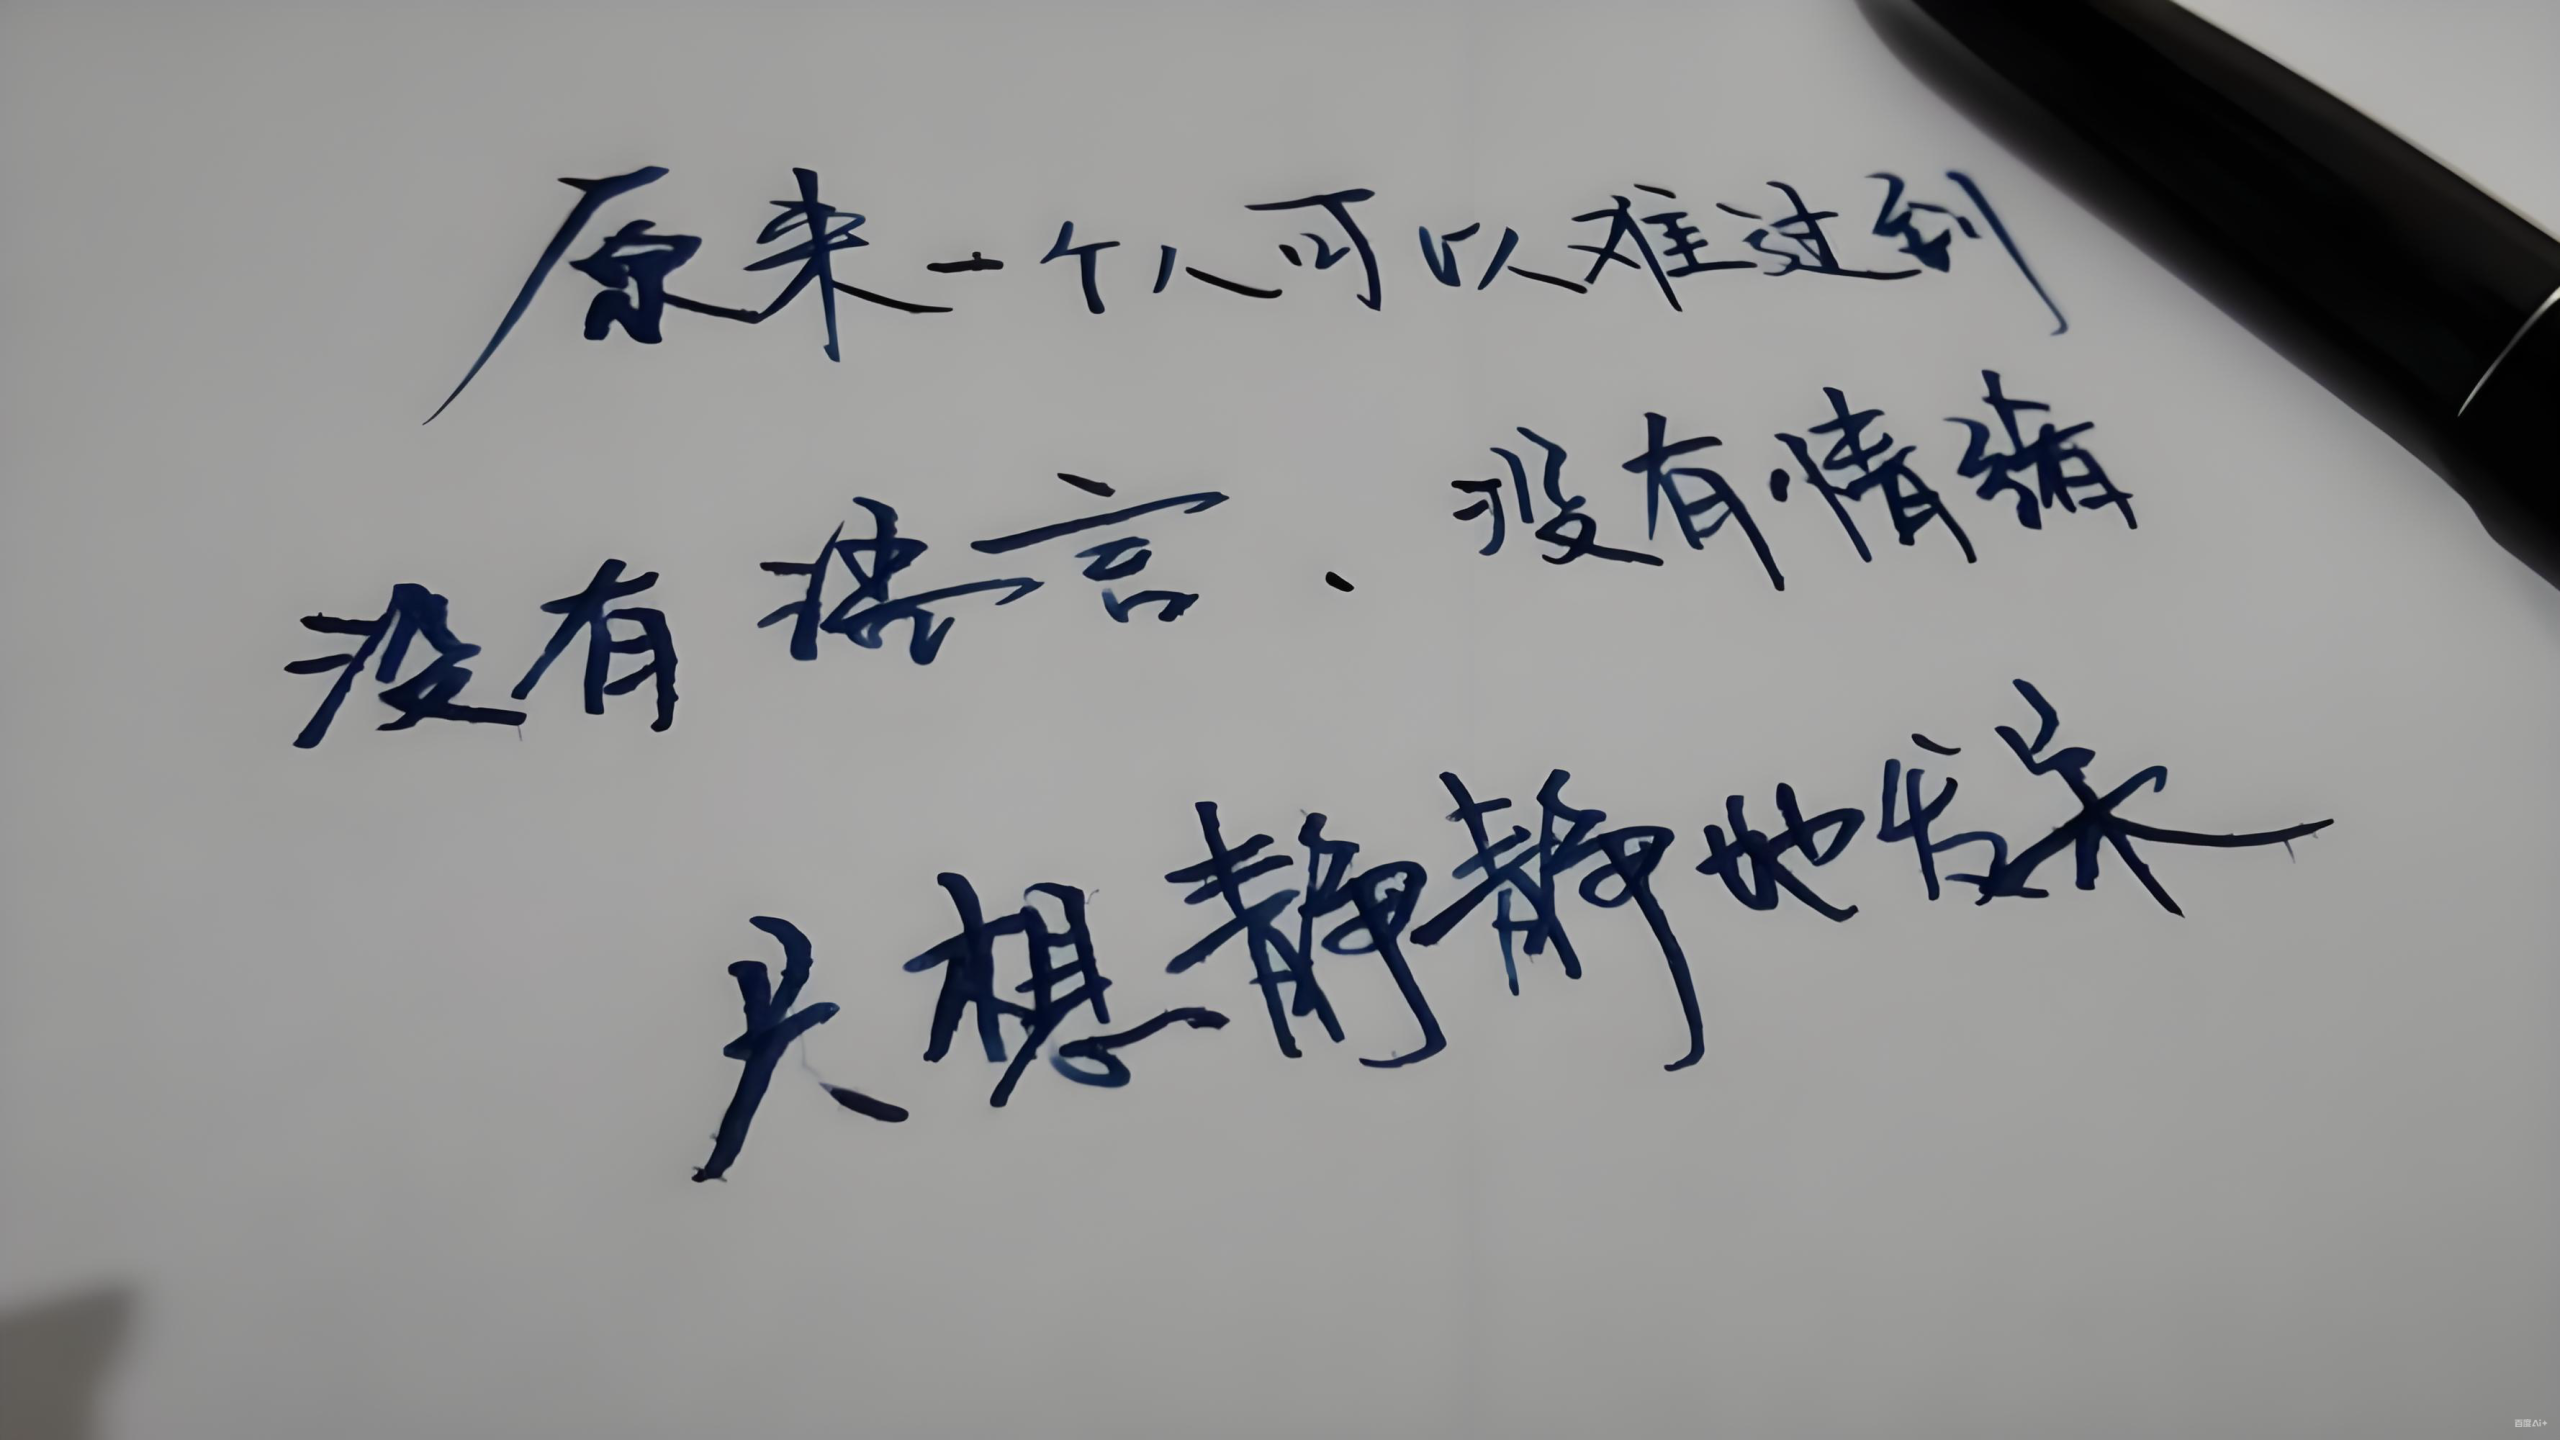 原来一个人可以难过到
没有语言、没有情绪
只想静静地发呆
百度AI+